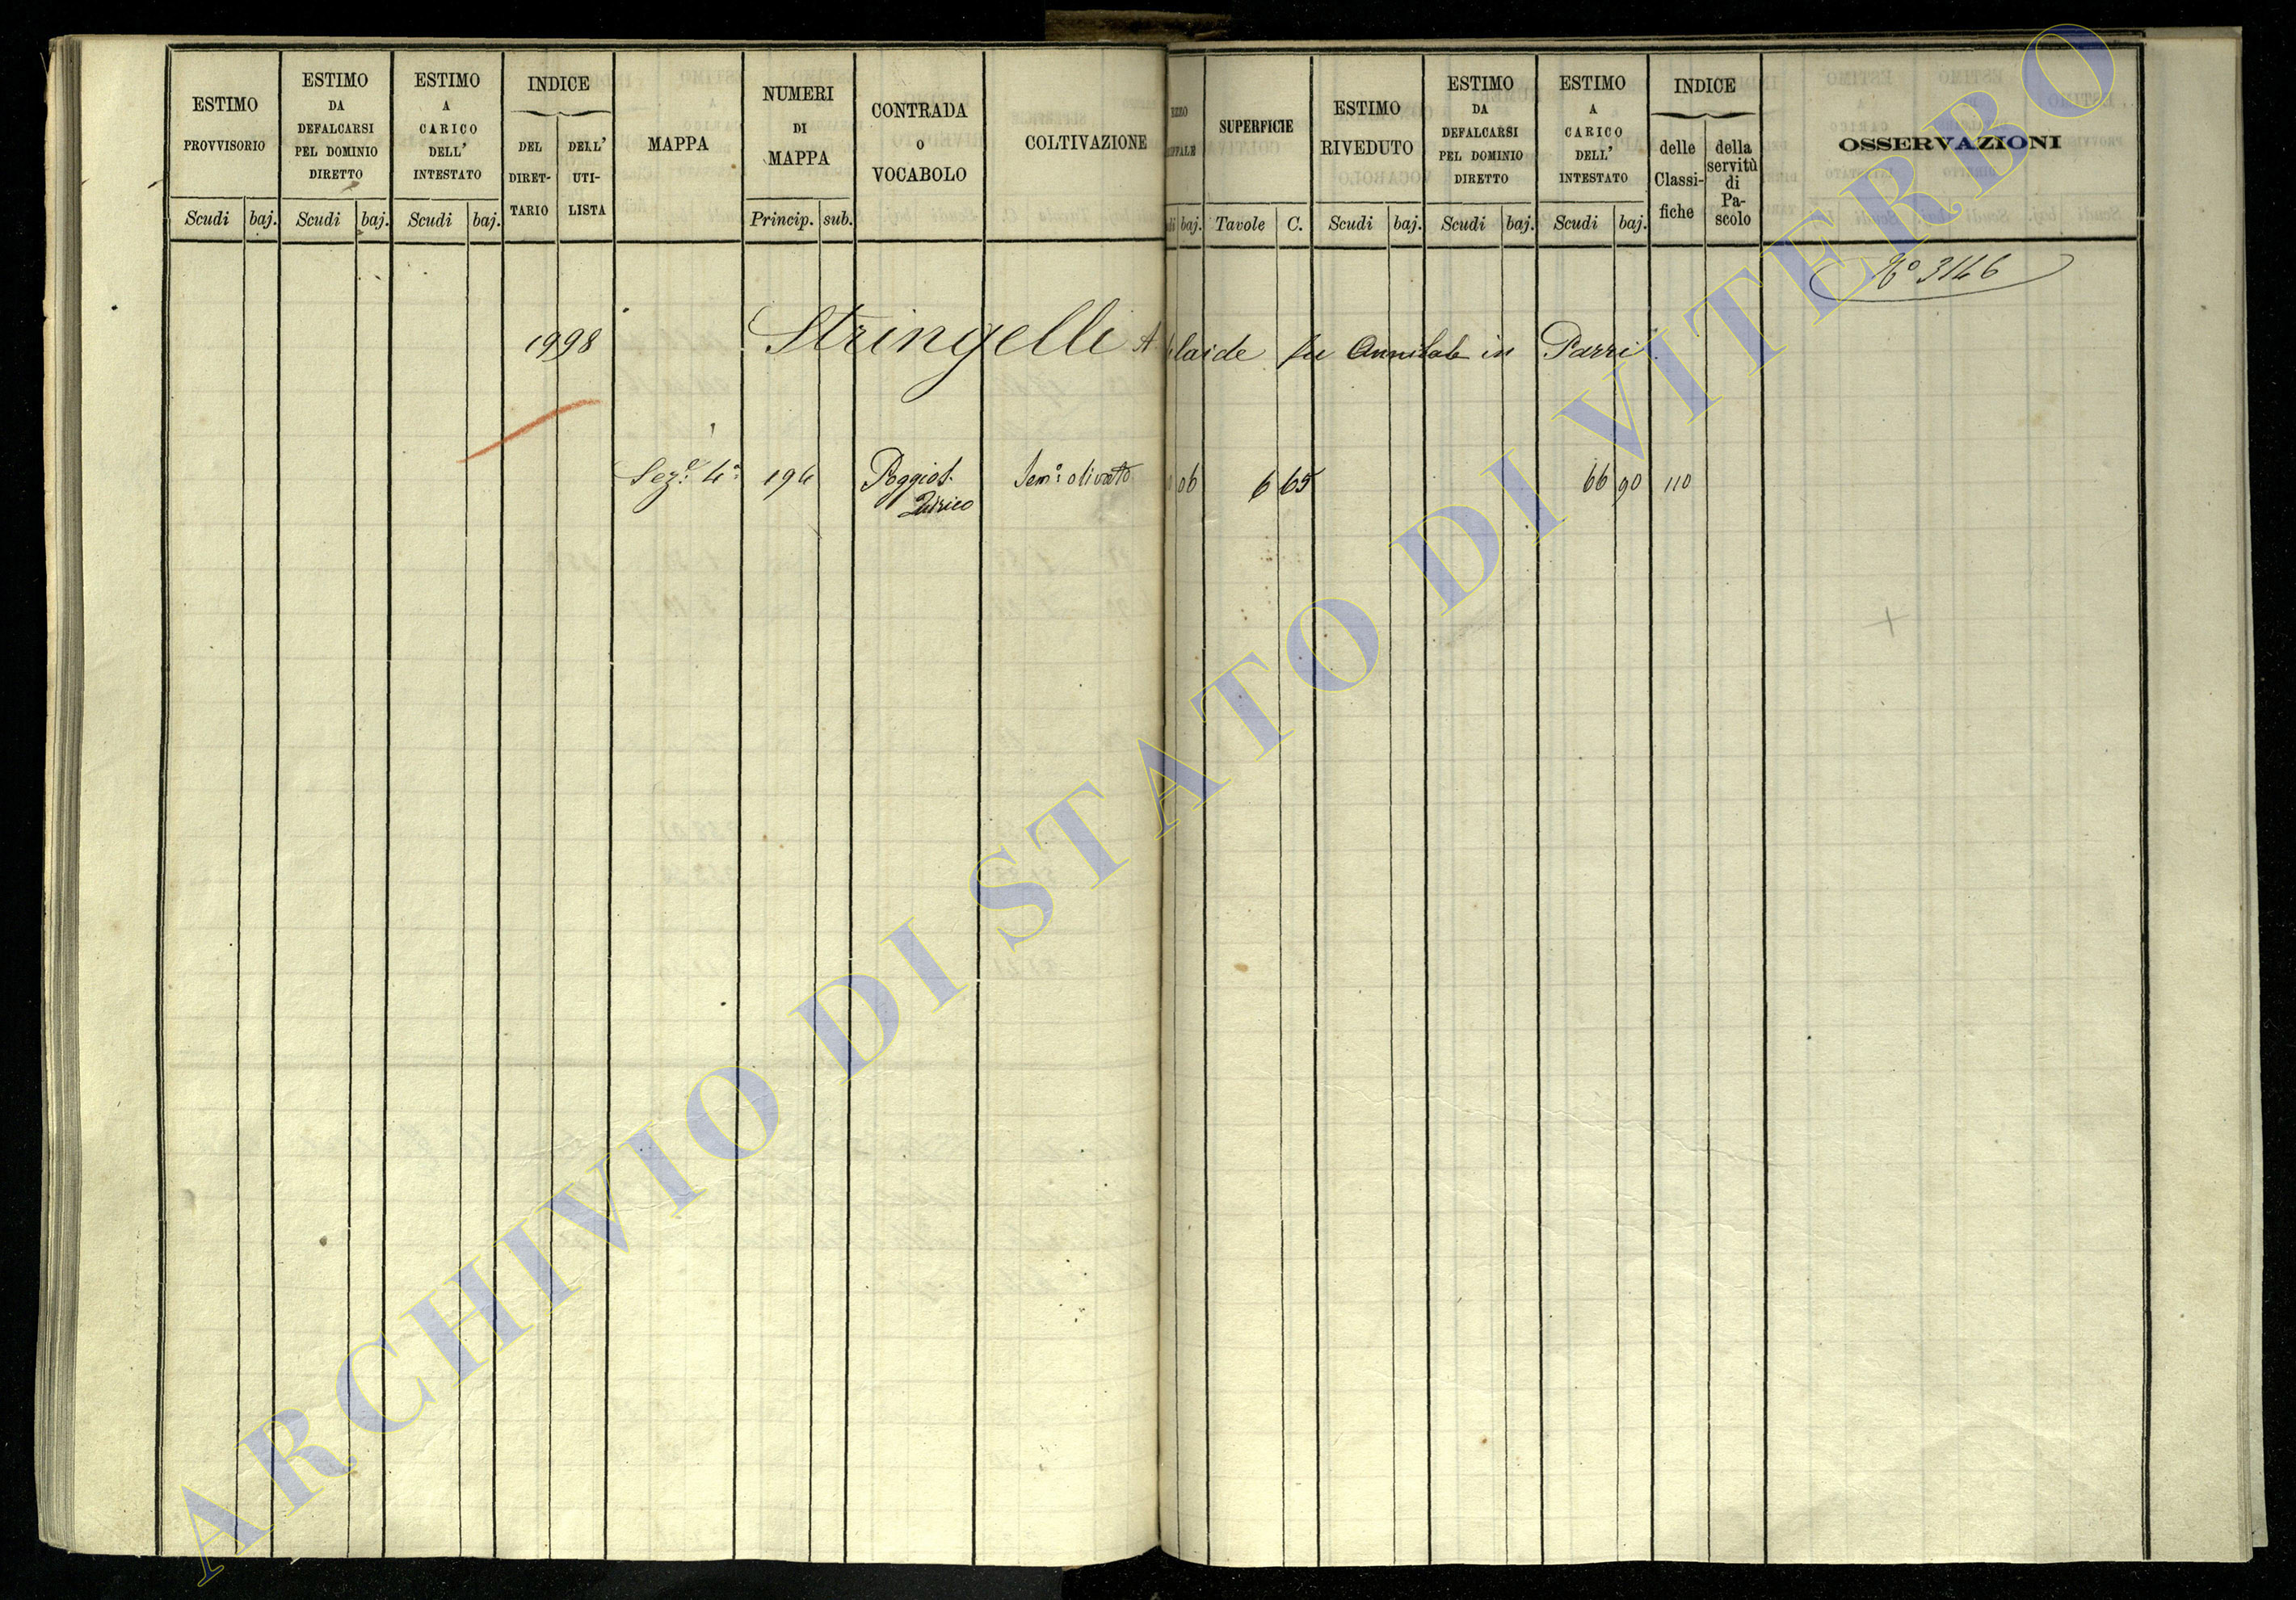 ESTIMO PROVVISORIO
Scudi baj.
ESTIMO DA DEFALCARSI PEL DOMINIO DIRETTO
Scudi baj.
ESTIMO A CARICO DELL' INTESTATO
Scudi baj.
INDICE
DEL DIRET- TARIO
DELL' UTI- LISTA
MAPPA
NUMERI DI MAPPA
Princip. sub.
CONTRADA O VOCABOLO
COLTIVAZIONE
baj.
SUPERFICIE
Tavole C.
ESTIMO RIVEDUTO
Scudi baj.
ESTIMO DA DEFALCARSI PEL DOMINIO DIRETTO
Scudi baj.
ESTIMO A CARICO DELL' INTESTATO
Scudi baj.
INDICE
delle Classi- fiche
della servitù di Pa- scolo
OSSERVAZIONI
Nº 3146
1998 Stringelli A laide fu Annibale in Parri
Sez.e 4a 194 Poggio S. Sem.o olivato 06 6 65 66 90 110
Quirico
ARCHIVIO DI STATO DI VITERBO